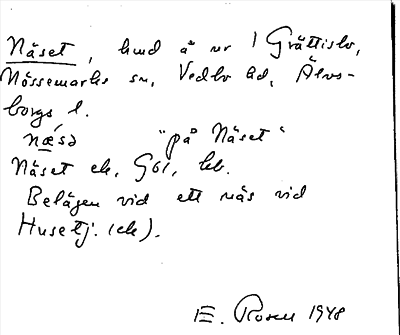 Näset, hmd å nr 1 Grättislv,
Nössemarks sn, Vedbo hd, Älvs-
borgs l.
næ´sə "på Näset"
Näset ek, Göl, hb.
Belägen vid ett näs vid
Husetj. (ek).
E. Rosen 1948